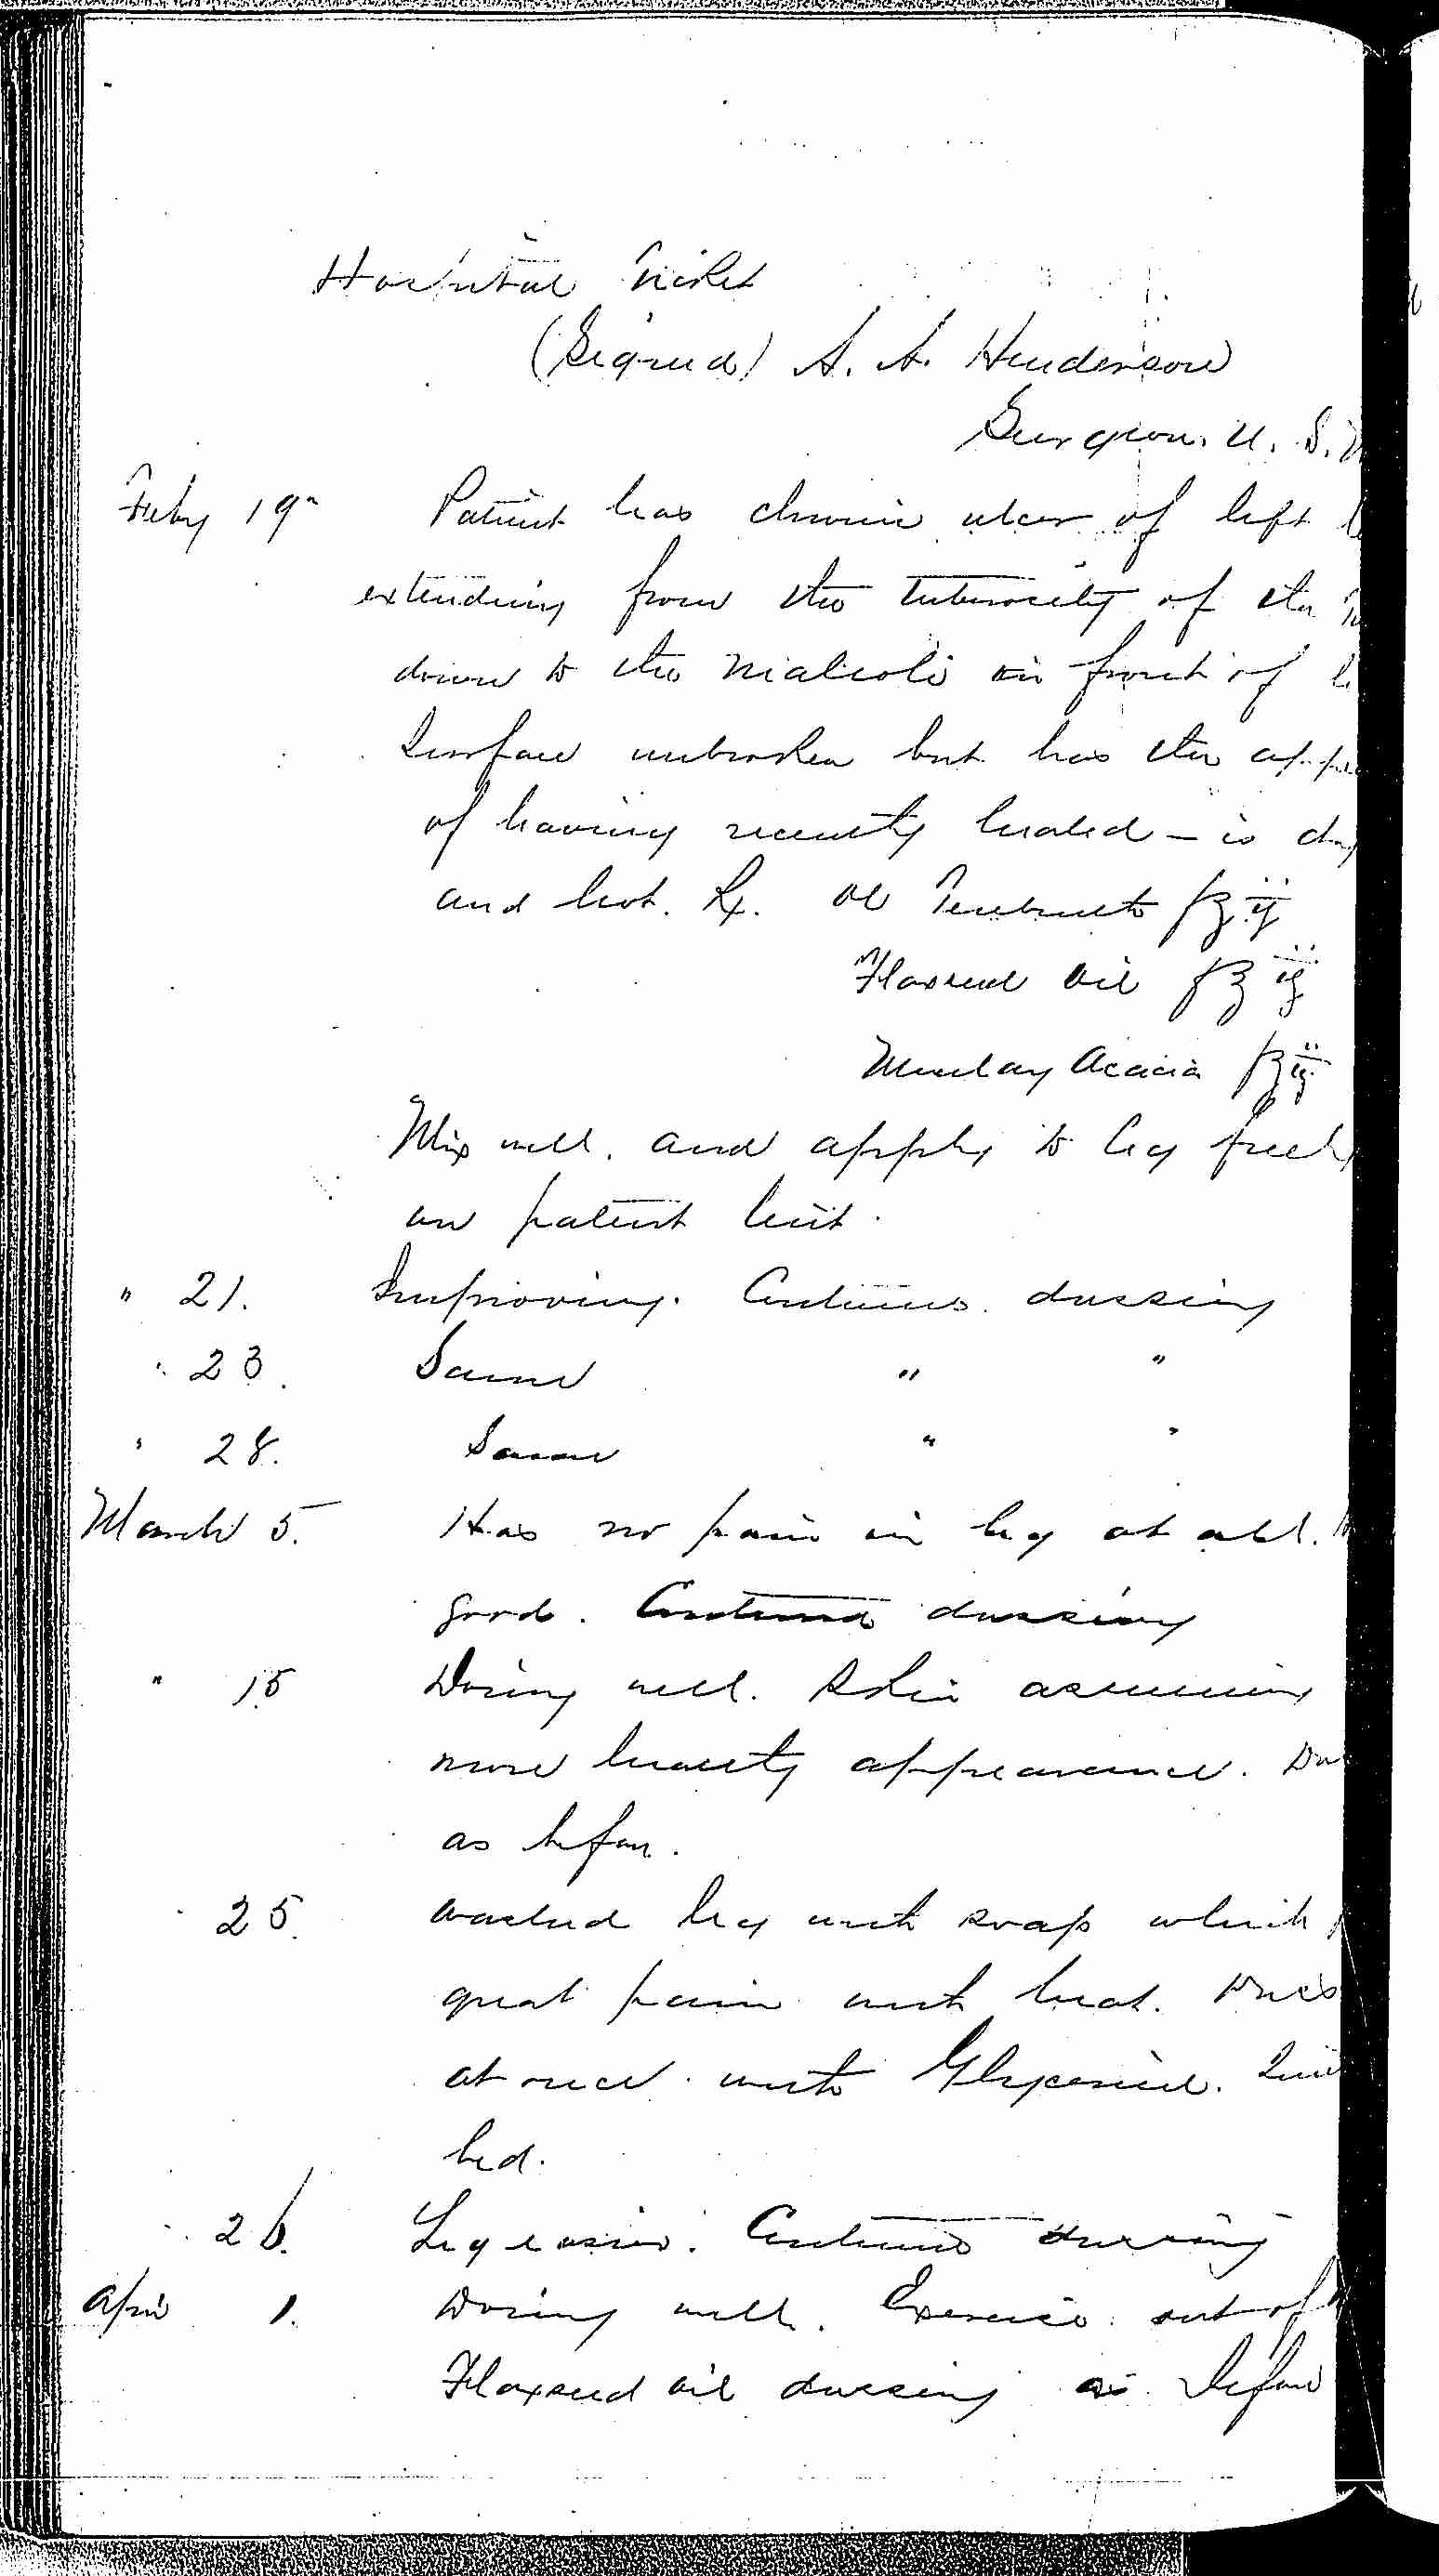 Hospital Ticket
(Signed) A. A. Henderson
Surgeon. U. S. N
Feby 19" Patient has chronic ulcer of left
extending from the tuberosity of the
down to the Malleoli in front of
Surface unbroken but has the appea
of having recently healed - is dry
and hot. Rx. Ol Terebinth f℥ ij
Flaxseed Oil f℥ ij
Mucilag Acacia f℥ ij
Mix well. and apply to leg freely
on patent lint.
" 21. Improving. Continue dressing
" 23. Same " "
" 28. Same " "
March 5. Has no pain in leg at all.
good. Continue dressing
" 15 Doing well. Skin assuming
more healthy appearance.
as before.
25. Washed leg with soap which
great pain with heat.
at once with Glycerine.
bed.
26. Leg easier. Continue dressing
April 1. Doing well. Exercise out of
Flaxseed oil dressing as before